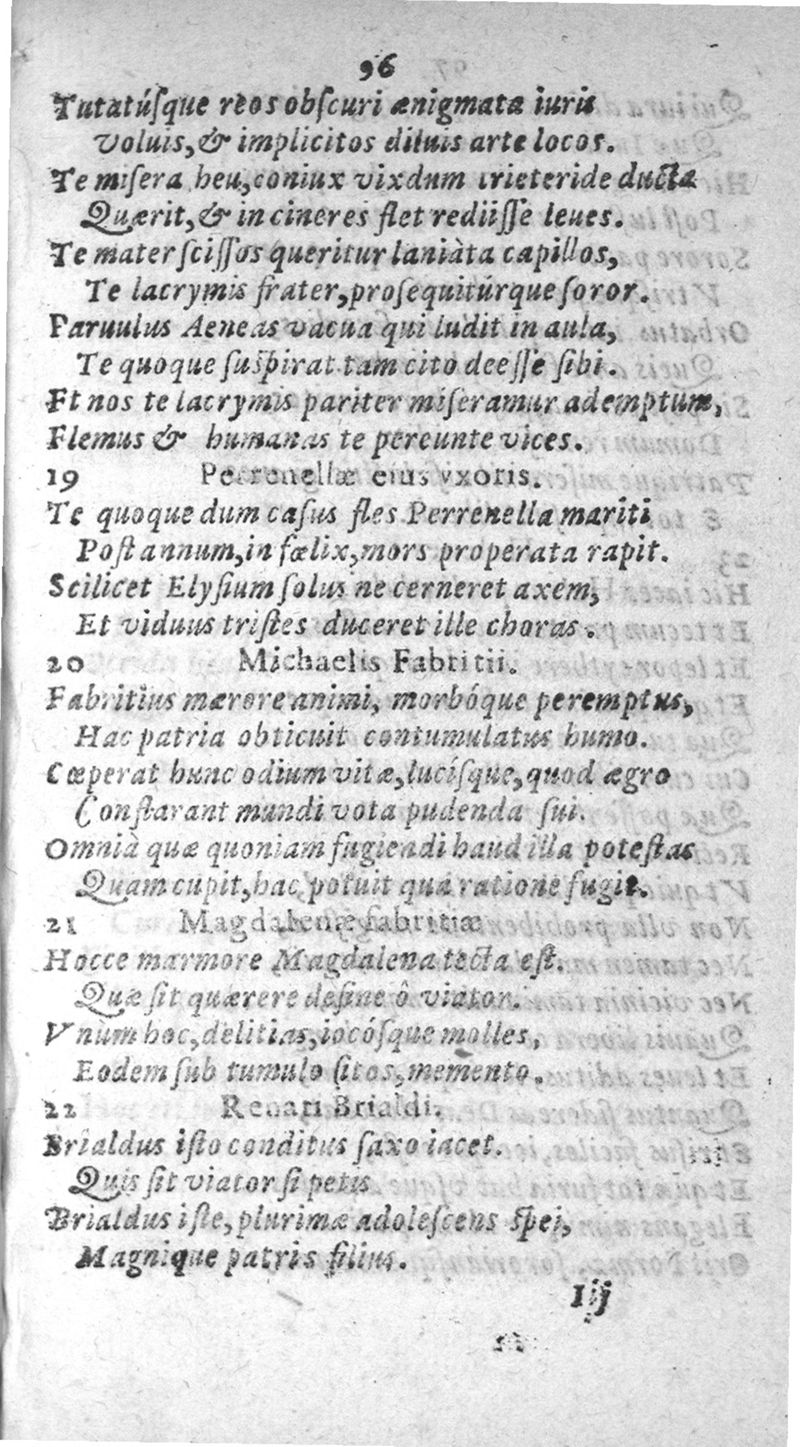 96
Tutatúsque reos obscuri ænigmata iuris
Voluis, & implicitos diluis arte locos.
Te misera heu, coniux vixdum trieteride ducta
Quærit, & in cineres flet rediisse leues.
Te mater scissos queritur laniàta capillos,
Te lacrymis frater, prosequitúrque soror.
Paruulus Aeneas vacua qui ludit in aula,
Te quoque suspirat tam cito deesse sibi.
Et nos te lacrymis pariter miseramur ademptum,
Flemus & humanas te pereunte vices.
19 Perrenellæ eius vxoris.
Te quoque dum casus fles Perrenella mariti
Post annum, in fœlix, mors properata rapit.
Scilicet Elysium solus ne cerneret axem,
Et viduus tristes duceret ille choras.
20 Michaelis Fabritii.
Fabritius mærore animi, morbóque peremptus,
Hac patria obticuit contumulatus humo.
Cœperat hunc odium vitæ, lucísque, quod ægro
Constarant mundi vota pudenda sui.
Omnia quæ quoniam fugiendi haud illa potestas
Quam cupit, hac potuit qua ratione fugit.
21 Magdalenæ fabritiæ
Hocce marmore Magdalena tecta est.
Quæ sit quærere desine ô viator.
Vnum hoc, delitias, iocósque molles,
Eodem sub tumulo sitos, memento.
22 Renati Brialdi.
Brialdus isto conditus saxo iacet.
Quis sit viator si petis
Brialdus iste, plurimæ adolescens spei,
Magnique patris filius.
I iij